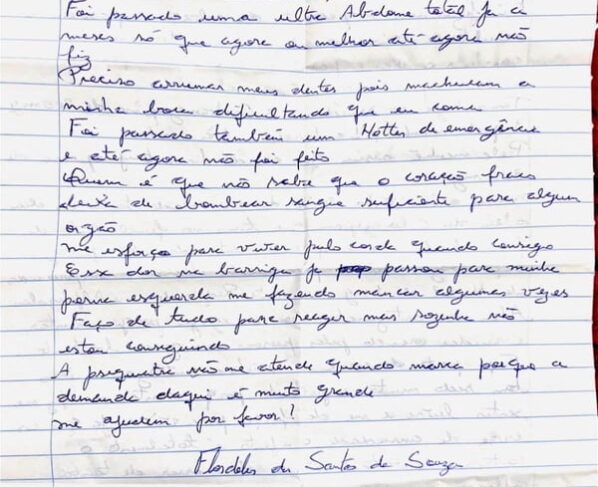 Foi passado uma ultra Abdome total ja a
meses só que agora ou melhor até agora não
fiz
Preciso arrumar meus dentes pois machucam a
minha boca dificultando que eu coma
Foi passado também um Holter de emergência
e até agora não foi feito
Quem é que não sabe que o coração fraco
deixa de bombear sangue suficiente para algum
orgão
me esforço para viver pulo corda quando consigo
Essa dor na barriga ja passou para minha
perna esquerda me fazendo mancar algumas vezes
Faço de tudo para reagir mas sozinha não
estou conseguindo
A psiquiatra não me atende quando marca porque a
demanda daqui é muito grande
me ajudem por favor!
Flordelis dos Santos de Souza